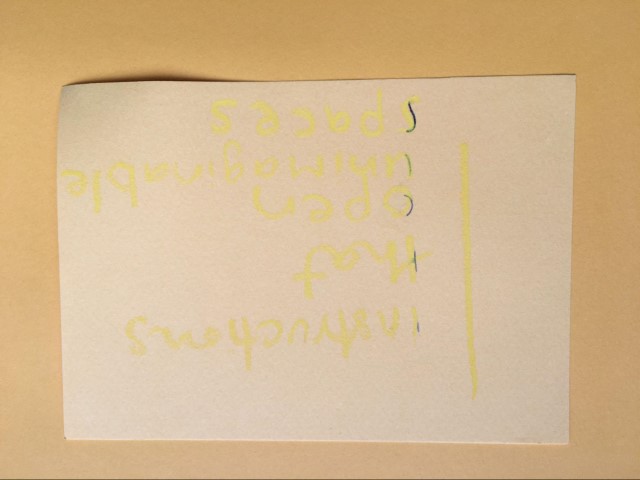 instructions
that
open
unimaginable
spaces